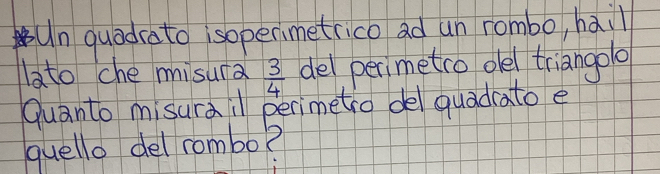 Un quadrato isoperimetrico ad un rombo, ha il
lato che misura 3/4 del perimetro del triangolo
Quanto misura il perimetro del quadrato e
quello del rombo?